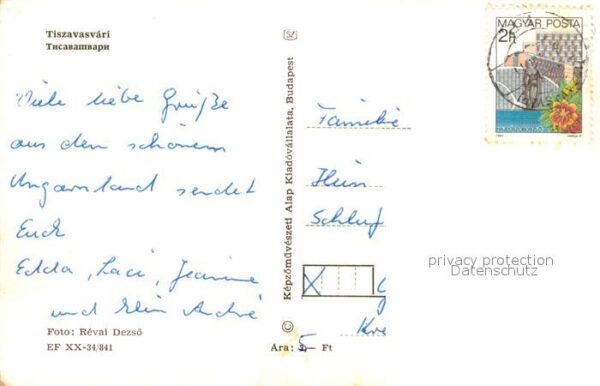 Tiszavasvári
Тисавашвари
Viele liebe Grüße
aus den schönem
Ungarnland sendet
Euch
Edda, Laci, Jeanine
und Klein André
Foto: Révai Dezső
EF XX-34/841
Képzőművészeti Alap Kiadóvállalata, Budapest
Ara: 5— Ft
MAGYAR POSTA
2Ft
Familie
Hein
Schluf
X
Kre
privacy protection
Datenschutz